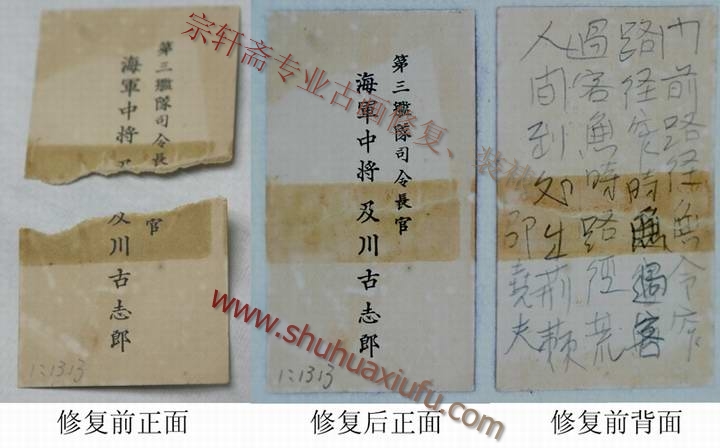 第三艦隊司令長
海軍中将
官
及川古志郎
1:1313
第三艦隊司令長官
海軍中将 及川古志郎
1:1313
门前路径無令窄
路径窄時無過客
過客無時路徑荒
人间到处生荊棘
邵堯夫
宗轩斋专业古画修复、装裱
www.shuhuaxiufu.com
修复前正面
修复后正面
修复前背面